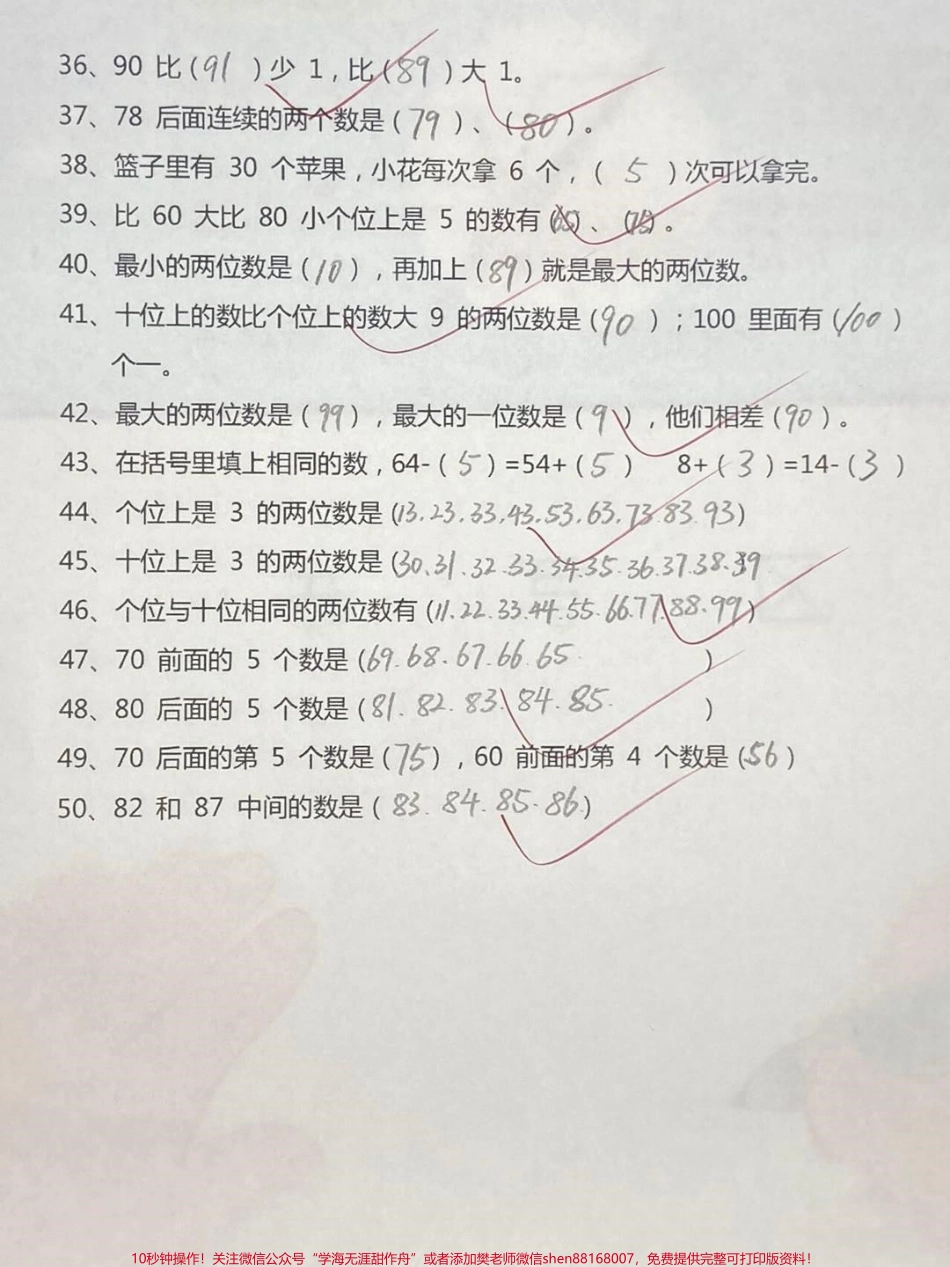 36、90 比(91)少 1，比(89)大 1。
37、78 后面连续的两个数是(79)、(80)。
38、篮子里有 30 个苹果，小花每次拿 6 个，(5)次可以拿完。
39、比 60 大比 80 小个位上是 5 的数有(65)、(75)。
40、最小的两位数是(10)，再加上(89)就是最大的两位数。
41、十位上的数比个位上的数大 9 的两位数是(90)；100 里面有(100)
个一。
42、最大的两位数是(99)，最大的一位数是(9)，他们相差(90)。
43、在括号里填上相同的数，64-(5)=54+(5) 8+(3)=14-(3)
44、个位上是 3 的两位数是(13.23.33.43.53.63.73.83.93)
45、十位上是 3 的两位数是(30.31.32.33.34.35.36.37.38.39
46、个位与十位相同的两位数有(11.22.33.44.55.66.77.88.99)
47、70 前面的 5 个数是(69.68.67.66.65)
48、80 后面的 5 个数是(81.82.83.84.85.)
49、70 后面的第 5 个数是(75)，60 前面的第 4 个数是(56)
50、82 和 87 中间的数是(83.84.85.86.)
10秒钟操作！关注微信公众号“学海无涯甜作舟”或者添加樊老师微信shen88168007，免费提供完整可打印版资料！